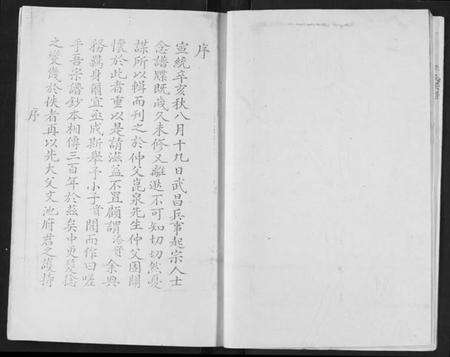 序
宣統辛亥秋八月十九日武昌兵事起宗人士
念譜牒既歲久未修又離逖不可知切切然憂
謀所以輯而刊之於仲父崑泉先生仲父固關
懷於此者重以是請滋益不置顧謂治賢余與
務為身爾宜亟成斯舉予小子賢聞而作曰嗟
乎吾宗譜鈔本相傳三百年於茲矣中更
之變幾於佚者再以先大父文池府君之護持
序